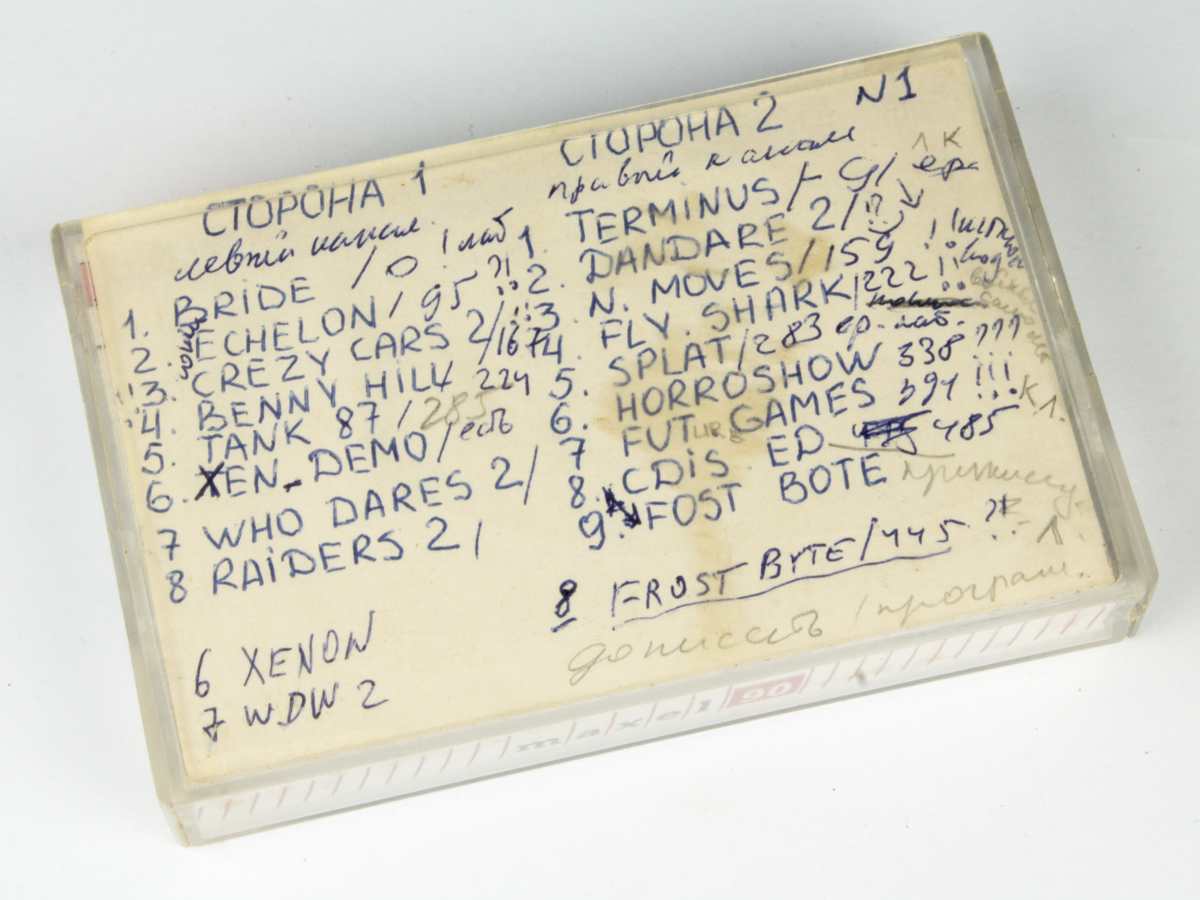 N1
СТОРОНА 1
левый канал.
1. BRIDE / 0 ! лаб
2. ECHELON / 95 ?!
3. CREZY CARS 2/
4. BENNY HILL 224
5. TANK 87 / 285
6. XEN_DEMO / есть
7 WHO DARES 2/
8 RAIDERS 2/
6 XENON
7 WDW 2
СТОРОНА 2
правый канал
ЛК
1. TERMINUS / - 9/ ера
2. DANDARE 2/ !?
3. N. MOVES / 159 !!
4. FLY. SHARK / 222 !!
5. SPLAT / 283 ер. лаб.
6. HORROSHOW 338 ???
7 FUTURE GAMES 391 !!! КЛ.
8. CDIS ED 485
9. FOST BOTE
8 FROST BYTE / 445 ?! Л.
дописать / програм.
maxell 90